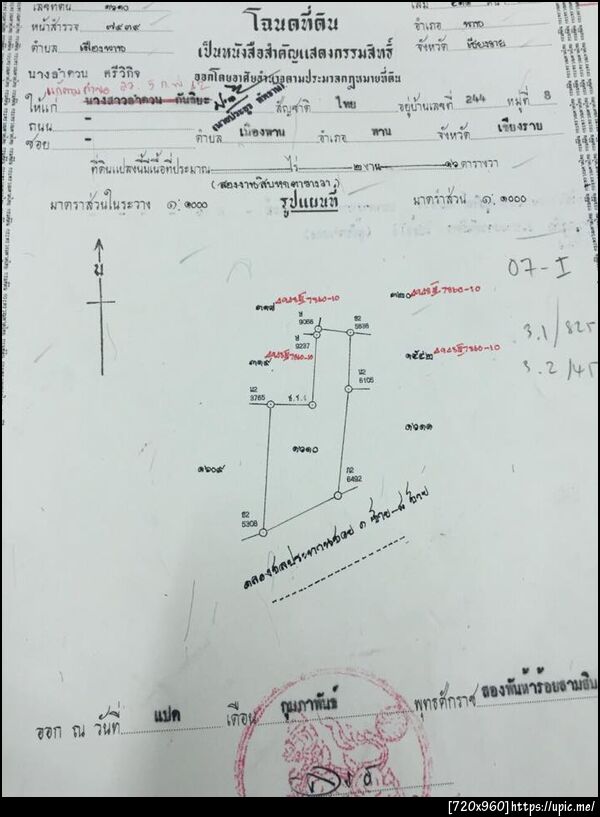 เลขที่ดิน ๑๖๑๐
หน้าสำรวจ ๗๕๓๙
ตำบล เมืองพาน
โฉนดที่ดิน
เป็นหนังสือสำคัญแสดงกรรมสิทธิ์
ออกโดยอาศัยอำนาจตามประมวลกฎหมายที่ดิน
เล่ม
อำเภอ พาน
จังหวัด เชียงราย
นางลำดวน ศรีวิกิจ
ให้แก่ นางสาวลำดวน สัญชาติ ไทย อยู่บ้านเลขที่ 244 หมู่ที่ 8
ถนน -
ซอย - ตำบล เมืองพาน อำเภอ พาน จังหวัด เชียงราย
ที่ดินแปลงนี้มีเนื้อที่ประมาณ - ไร่ ๒ งาน ๑๖ ตารางวา
(สองงานสิบหกตารางวา)
มาตราส่วนในระวาง ๑: ๑๐๐๐ รูปแผนที่ มาตราส่วน ๑: ๑๐๐๐
น
07-I
3.1/825
3.2/45
๓๑๗
๓๒๐
๓๑๙
๑๕๕๒
ษ
9068
ษ
9237
ฮ2
5636
น2
6105
น2
3765
ช.ร.เ
๑๖๑๐
๑๖๑๑
๑๖๐๙
ภ2
6492
ฮ2
5308
คลองชลประทานซอย ๑ ซ้าย-๘ ซ้าย
ออก ณ วันที่ แปด เดือน กุมภาพันธ์ พุทธศักราช สองพันห้าร้อยสามสิบ
[720x960]https://upic.me/